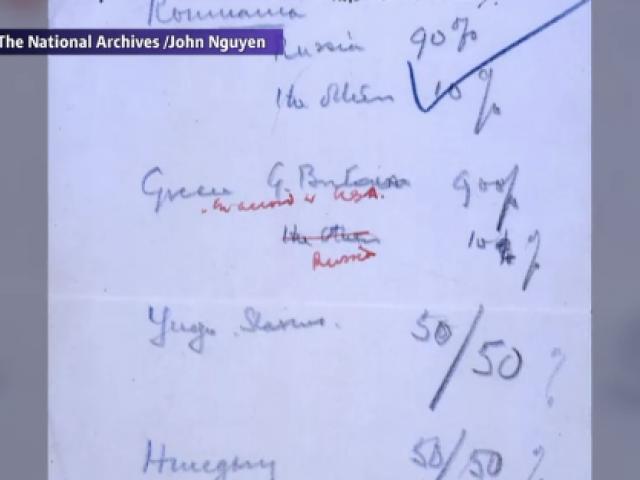 Roumania
The National Archives /John Nguyen
Russia 90%
The others 10%
Greece G. Britain 90%
in accord w USA.
The others 10%
Russia
Yugo Slavia. 50/50 %
Hungary 50/50 %